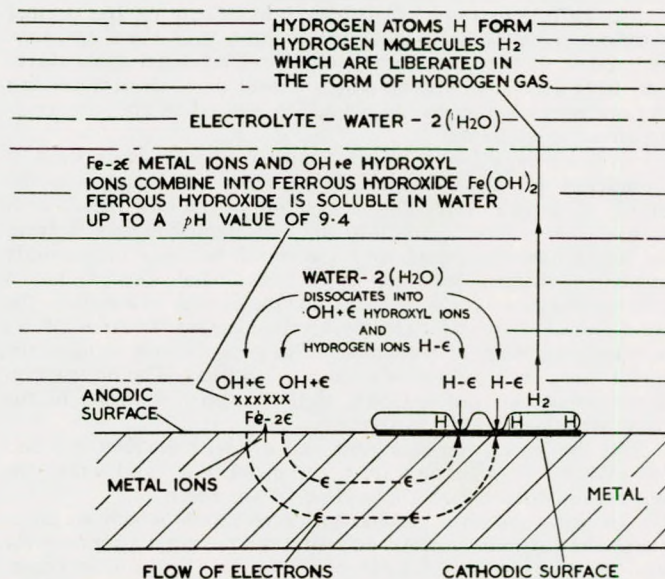 HYDROGEN ATOMS H FORM
HYDROGEN MOLECULES H2
WHICH ARE LIBERATED IN
THE FORM OF HYDROGEN GAS.
ELECTROLYTE - WATER - 2(H2O)
Fe-2ϵ METAL IONS AND OH+e HYDROXYL
IONS COMBINE INTO FERROUS HYDROXIDE Fe(OH)2
FERROUS HYDROXIDE IS SOLUBLE IN WATER
UP TO A pH VALUE OF 9·4
WATER- 2(H2O)
DISSOCIATES INTO
OH+ϵ HYDROXYL IONS
AND
HYDROGEN IONS H-ϵ
OH+ϵ OH+ϵ H-ϵ H-ϵ
xxxxxx H2
ANODIC
SURFACE
Fe-2ϵ H H H
METAL IONS
ϵ ϵ
METAL
ϵ ϵ
FLOW OF ELECTRONS CATHODIC SURFACE